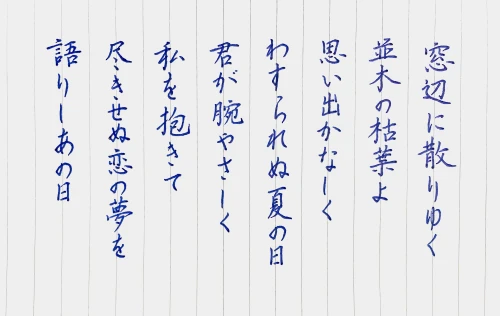 窓辺に散りゆく
並木の枯葉よ
思い出かなしく
わすられぬ夏の日
君が腕やさしく
私を抱きて
尽きせぬ恋の夢を
語りしあの日